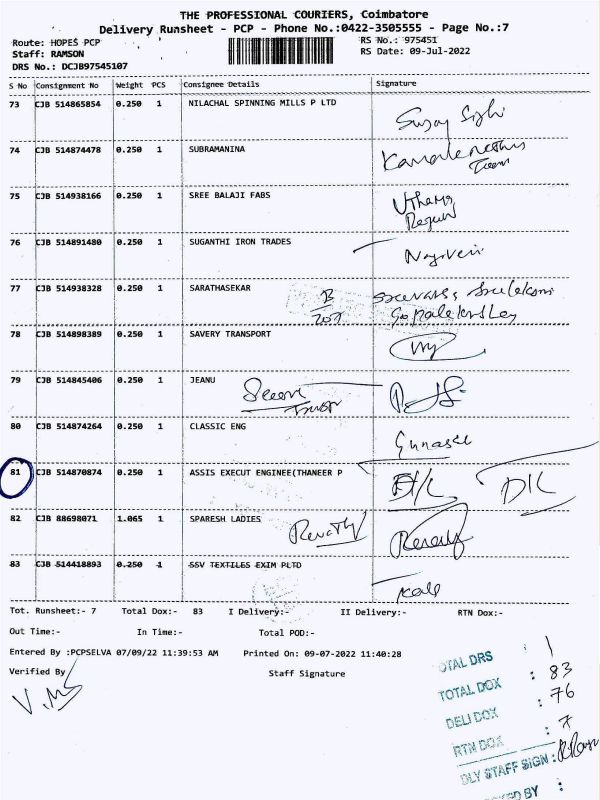 THE PROFESSIONAL COURIERS, Coimbatore
Delivery Runsheet - PCP - Phone No.:0422-3505555 - Page No.:7
Route: HOPES PCP
RS No.: 975451
Staff: RAMSON
RS Date: 09-Jul-2022
DRS No.: DCJB97545107
S No Consignment No Weight PCS Consignee Details Signature
73 CJB 514865854 0.250 1 NILACHAL SPINNING MILLS P LTD
74 CJB 514874478 0.250 1 SUBRAMANINA
75 CJB 514938166 0.250 1 SREE BALAJI FABS
76 CJB 514891480 0.250 1 SUGANTHI IRON TRADES
77 CJB 514938328 0.250 1 SARATHASEKAR
78 CJB 514898389 0.250 1 SAVERY TRANSPORT
79 CJB 514845406 0.250 1 JEANU
80 CJB 514874264 0.250 1 CLASSIC ENG
81 CJB 514870874 0.250 1 ASSIS EXECUT ENGINEE(THANEER P
82 CJB 88698071 1.065 1 SPARESH LADIES
83 CJB 514418893 0.250 1 SSV TEXTILES EXIM PLTD
Tot. Runsheet:- 7 Total Dox:- 83 I Delivery:- II Delivery:- RTN Dox:-
Out Time:- In Time:- Total POD:-
Entered By :PCPSELVA 07/09/22 11:39:53 AM Printed On: 09-07-2022 11:40:28
Verified By Staff Signature
OTAL DRS : 1
TOTAL DOX : 83
DELI DOX : 76
RTN DOX : 7
DLY STAFF SIGN :
KED BY :